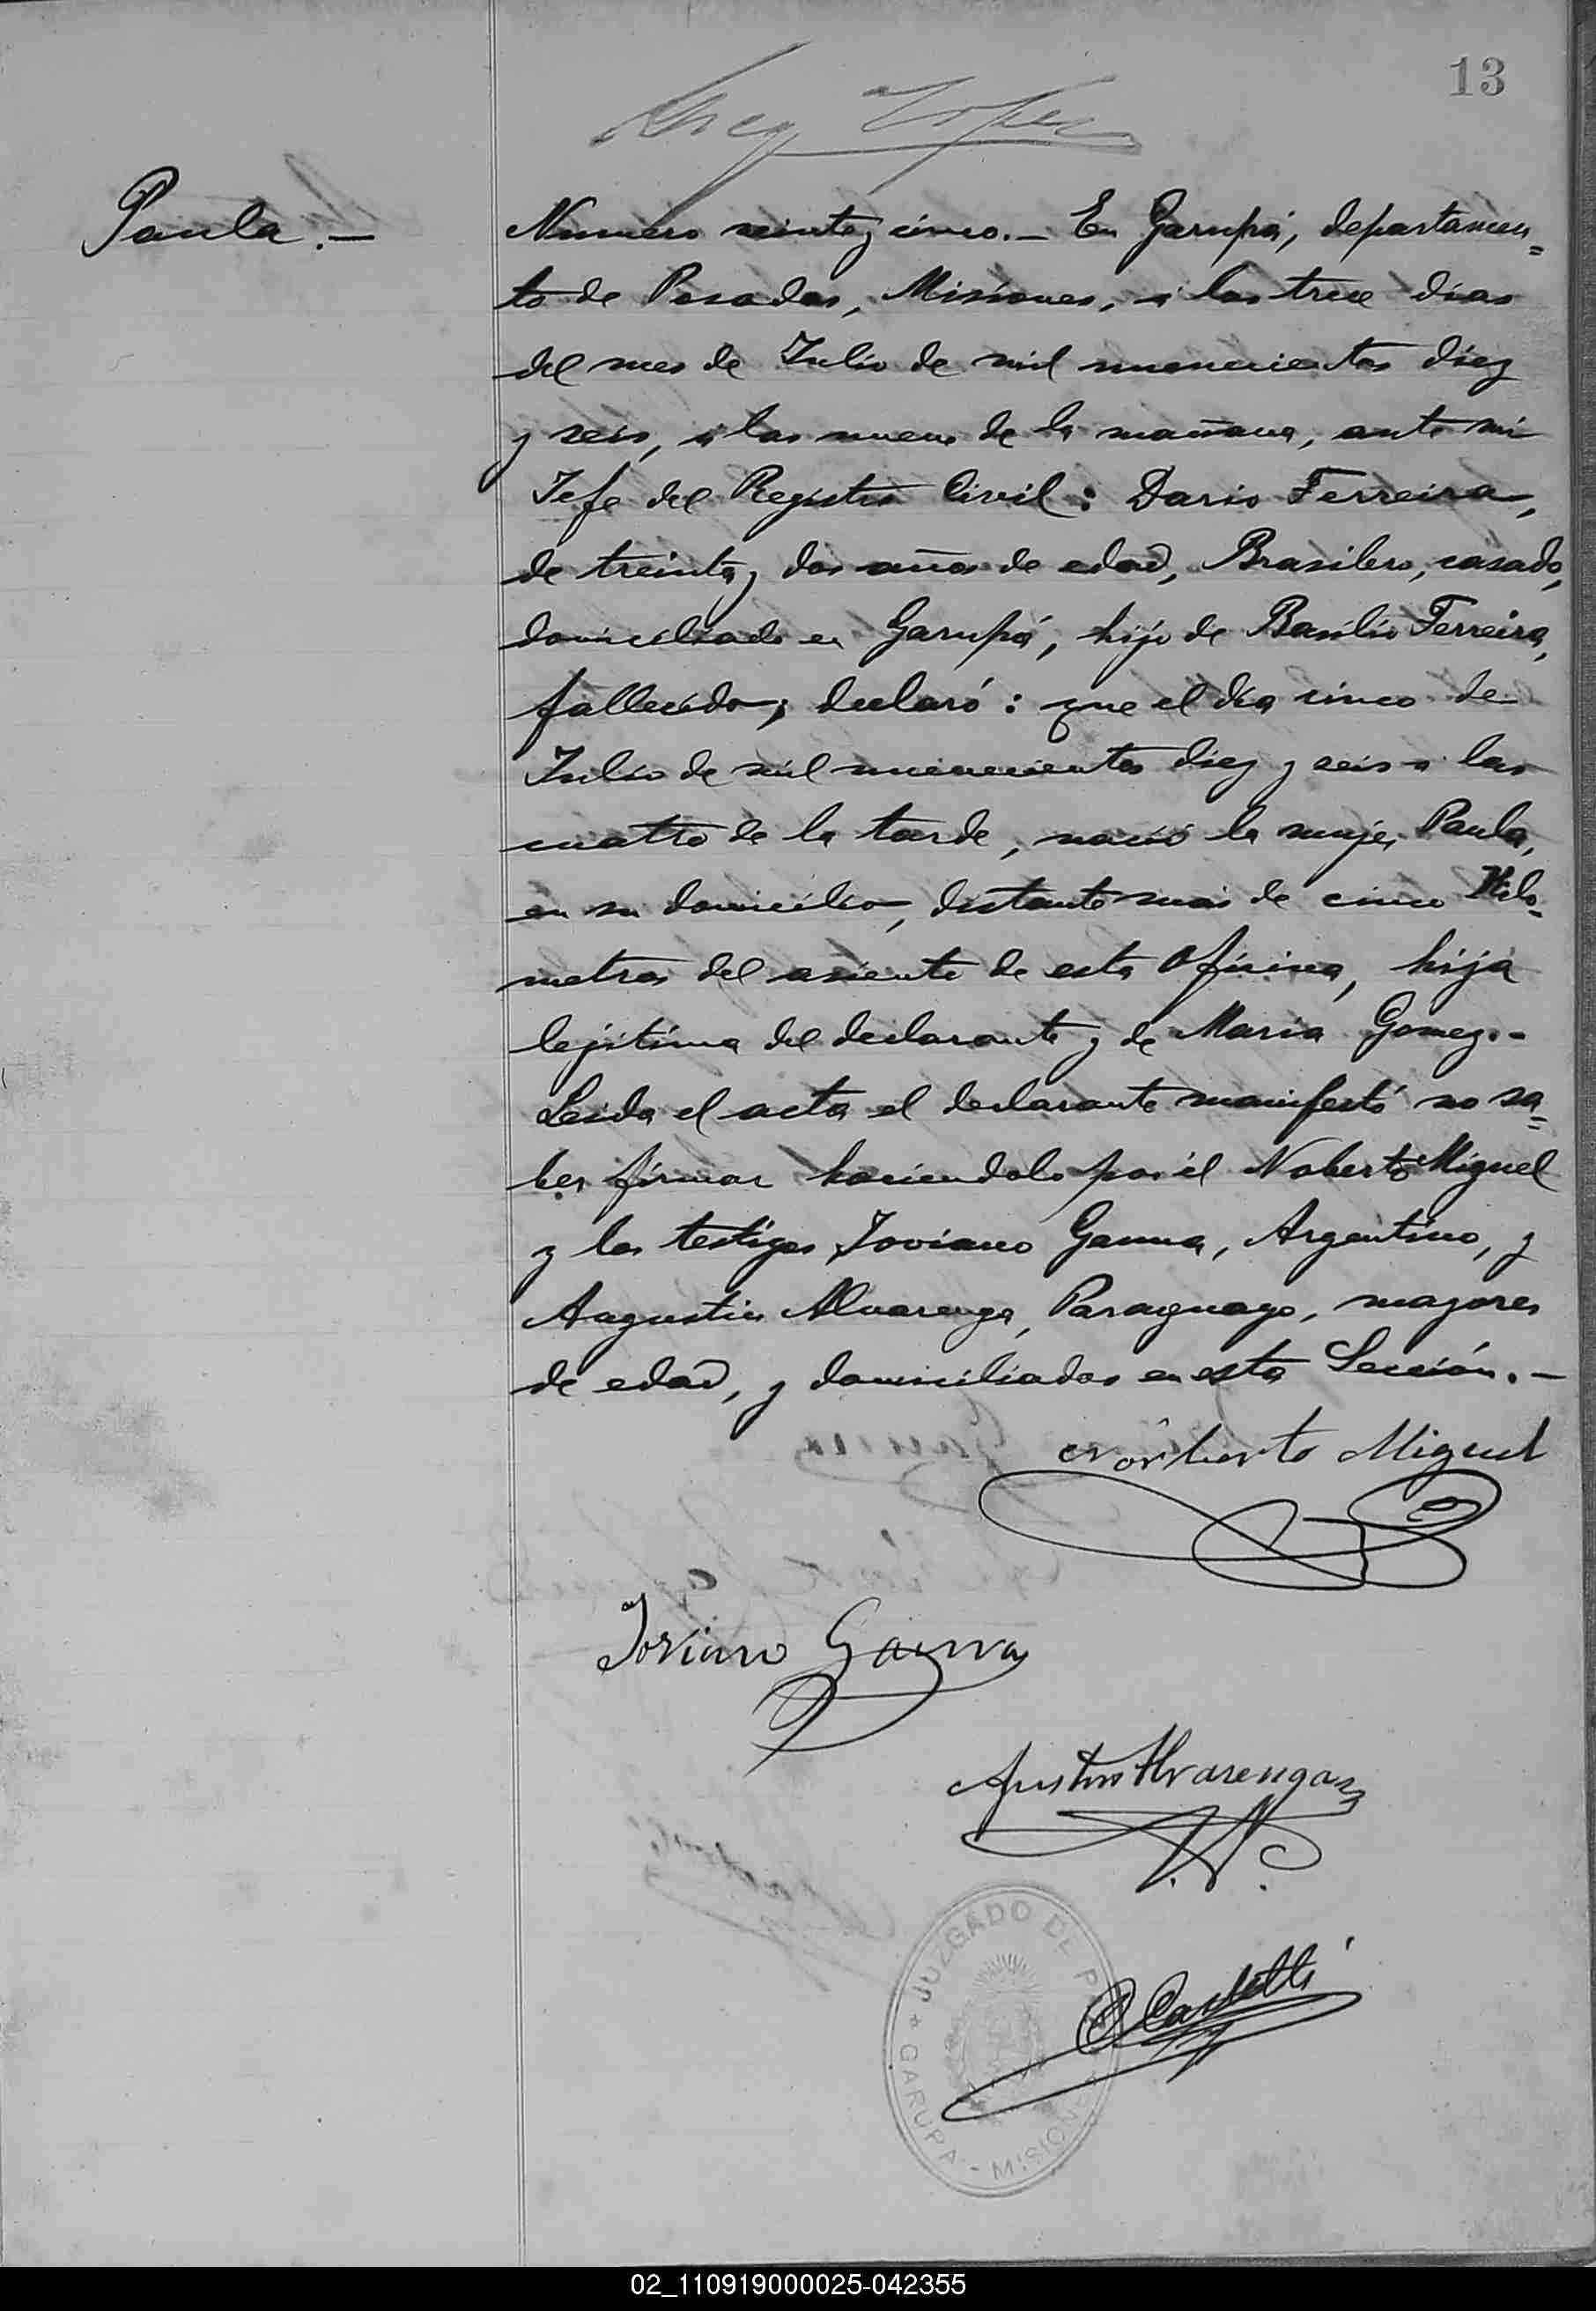 13
Lopez
Paula.—
Numero veinte y cinco.— En Garupá, departamen=
to de Posadas, Misiones, á los trece dias
del mes de Julio de mil novecientos diez
y seis, á las nueve de la mañana, ante mi
Jefe del Registro Civil: Dario Ferreira,
de treinta y dos años de edad, Brasilero, casado,
domiciliado en Garupá, hijo de Basilio Ferreira,
fallecido; declaró: que el dia cinco de
Julio de mil novecientos diez y seis á las
cuatro de la tarde, nació la mujer Paula,
en su domicilio, distante mas de cinco Kilo=
metros del asiento de esta Oficina, hija
lejitima del declarante y de Maria Gomez.-
Leida el acta el declarante manifestó no sa=
ber firmar haciendolo por él Noberto Miguel
y los testigos Joviano Gamna, Argentino, y
Augustin Alvarenga, Paraguayo, mayores
de edad, y domiciliados en esta Sección.—
Norberto Miguel
Joviano
Alvarenga
JUZGADO DE P
GARUPA - MISIONES
02_110919000025-042355